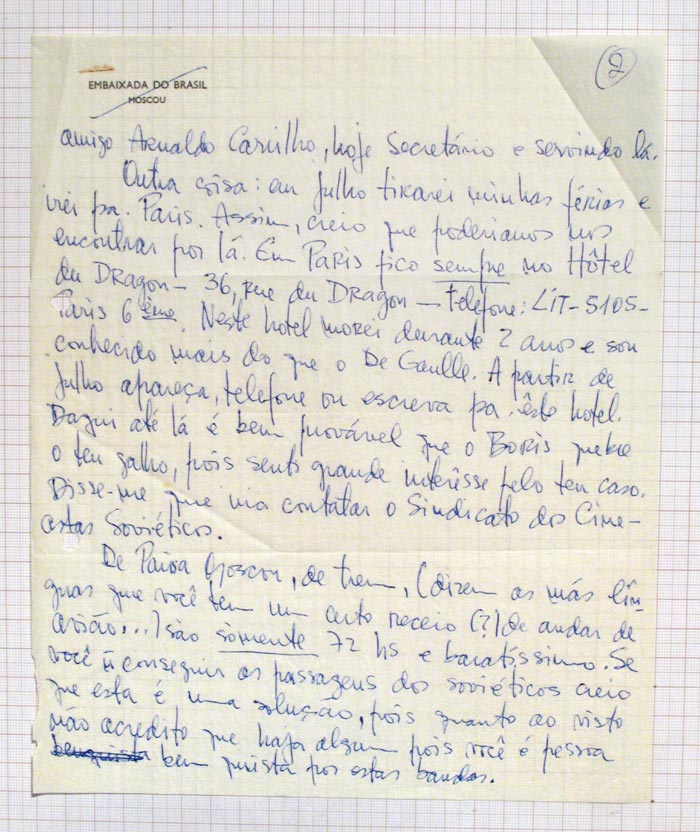 2
EMBAIXADA DO BRASIL
MOSCOU
amigo Arnaldo Carrilho, hoje Secretário e servindo lá.
Outra coisa: em julho tirarei minhas férias e
irei pa. Paris. Assim, creio que poderiamos nos
encontrar por lá. Em Paris fico sempre no Hôtel
du Dragon — 36, rue du Dragon — telefone: LIT-5105-
Paris 6 ème. Neste hotel morei durante 2 anos e sou
conhecido mais do que o De Gaulle. A partir de
julho apareça, telefone ou escreva pa. êste hotel.
Daqui até lá é bem provável que o Boris quebre
o teu galho, pois senti grande interêsse pelo teu caso.
Disse-me que ia contatar o Sindicato dos Cine-
astas Soviéticos.
De Moscou, de trem, (dizem as más lín-
guas que você tem um certo receio (?) de andar de
avião...) são sòmente 72 hs e baratíssimo. Se
você ñ conseguir as passagens dos soviéticos creio
que esta é uma solução, pois quanto ao visto
não acredito que haja algum pois você é pessoa
benquista bem quista por estas bandas.